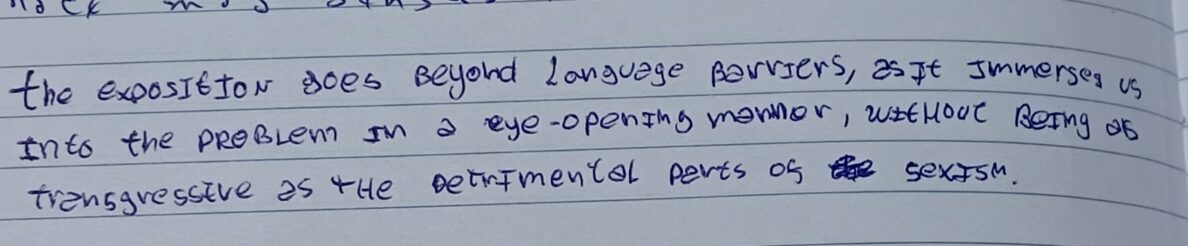 the exposition goes Beyond language Barriers, as it immerses us
into the problem in a eye-opening manner, without Being as
transgressive as the detrimental parts of sexism.